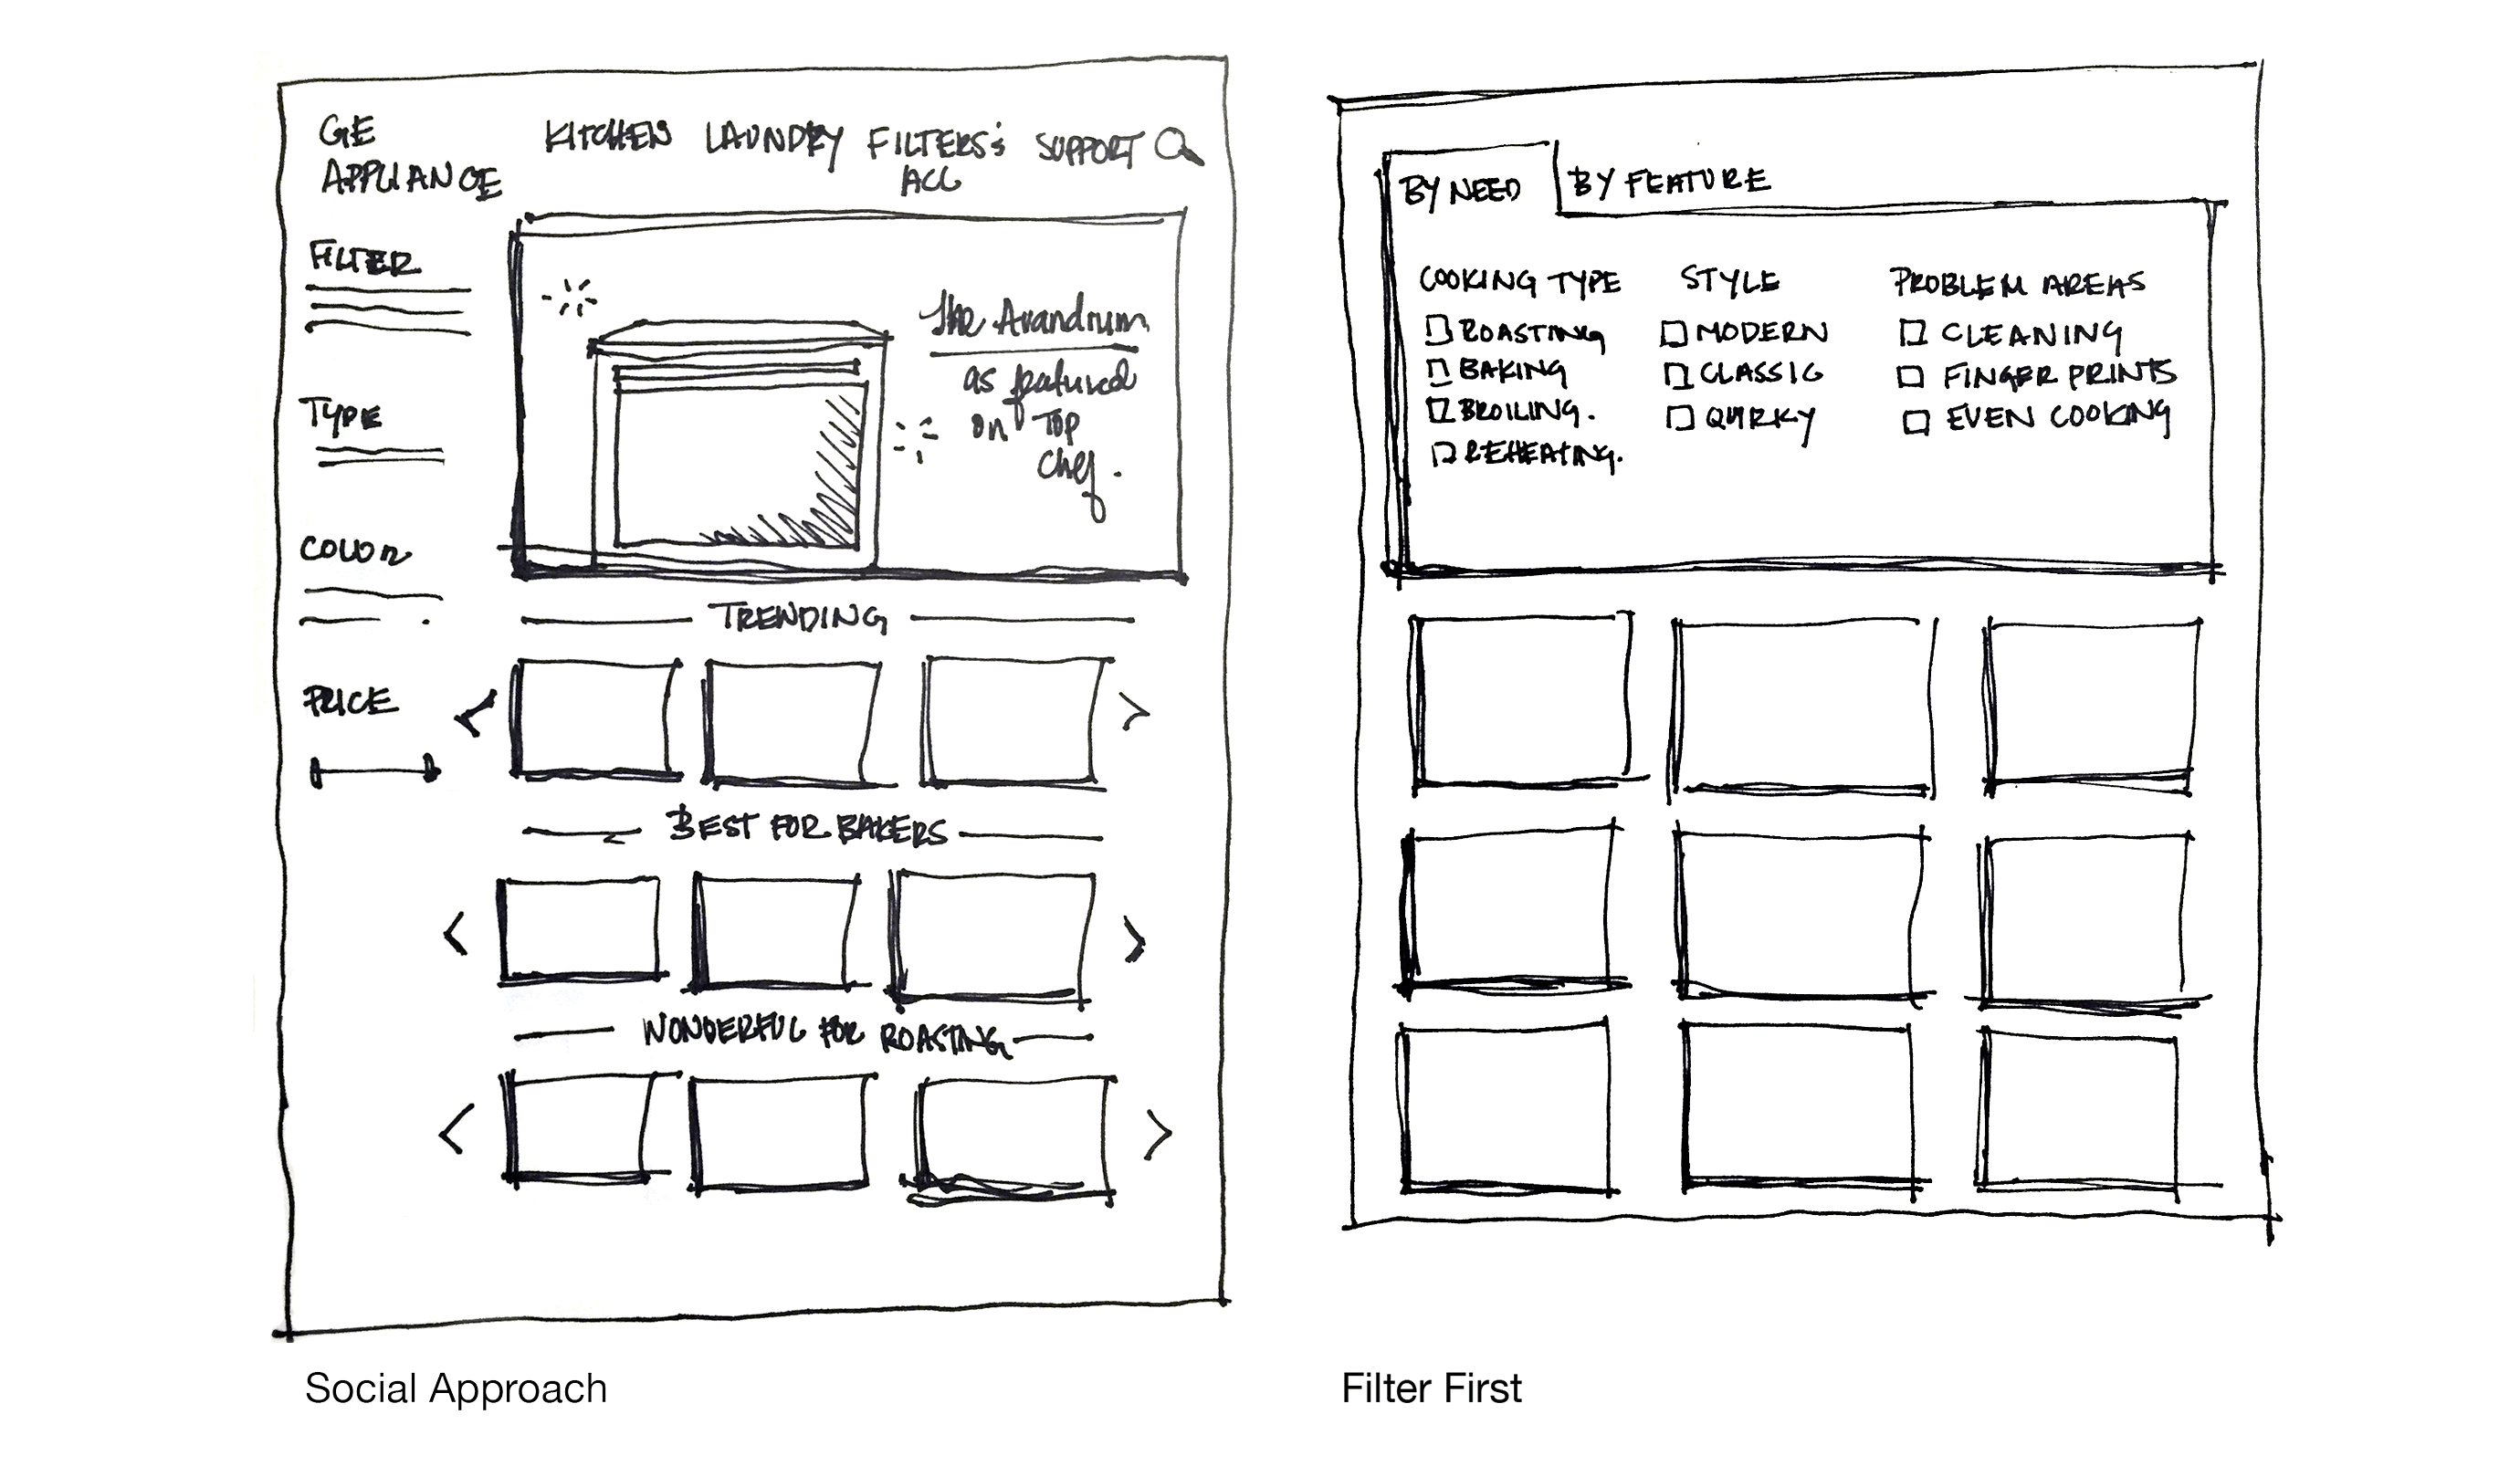 GE
APPLIANCE
KITCHEN LAUNDRY FILTERS & SUPPORT
ACC
FILTER
TYPE
COLOR
PRICE
The Avandrum
as featured
on Top
Chef.
TRENDING
BEST FOR BAKERS
WONDERFUL FOR ROASTING
Social Approach
BY NEED BY FEATURE
COOKING TYPE
ROASTING
BAKING
BROILING.
REHEATING.
STYLE
MODERN
CLASSIC
QUIRKY
PROBLEM AREAS
CLEANING
FINGER PRINTS
EVEN COOKING
Filter First